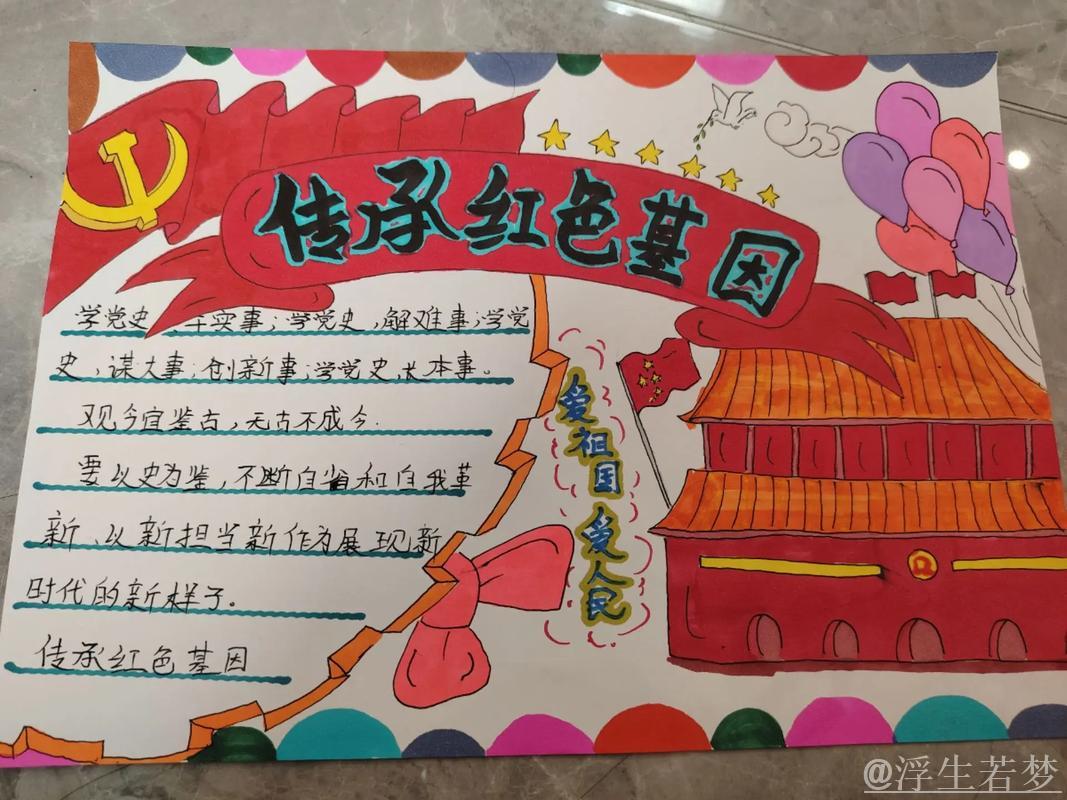 传承红色基因
学党史 干实事；学党史，解难事；学党
史，谋大事，创新事；学党史，长本事。
观今宜鉴古，无古不成今.
要以史为鉴，不断自省和自我革
新、以新担当新作为展现新
时代的新样子.
传承红色基因
爱祖国 爱人民
@浮生若梦